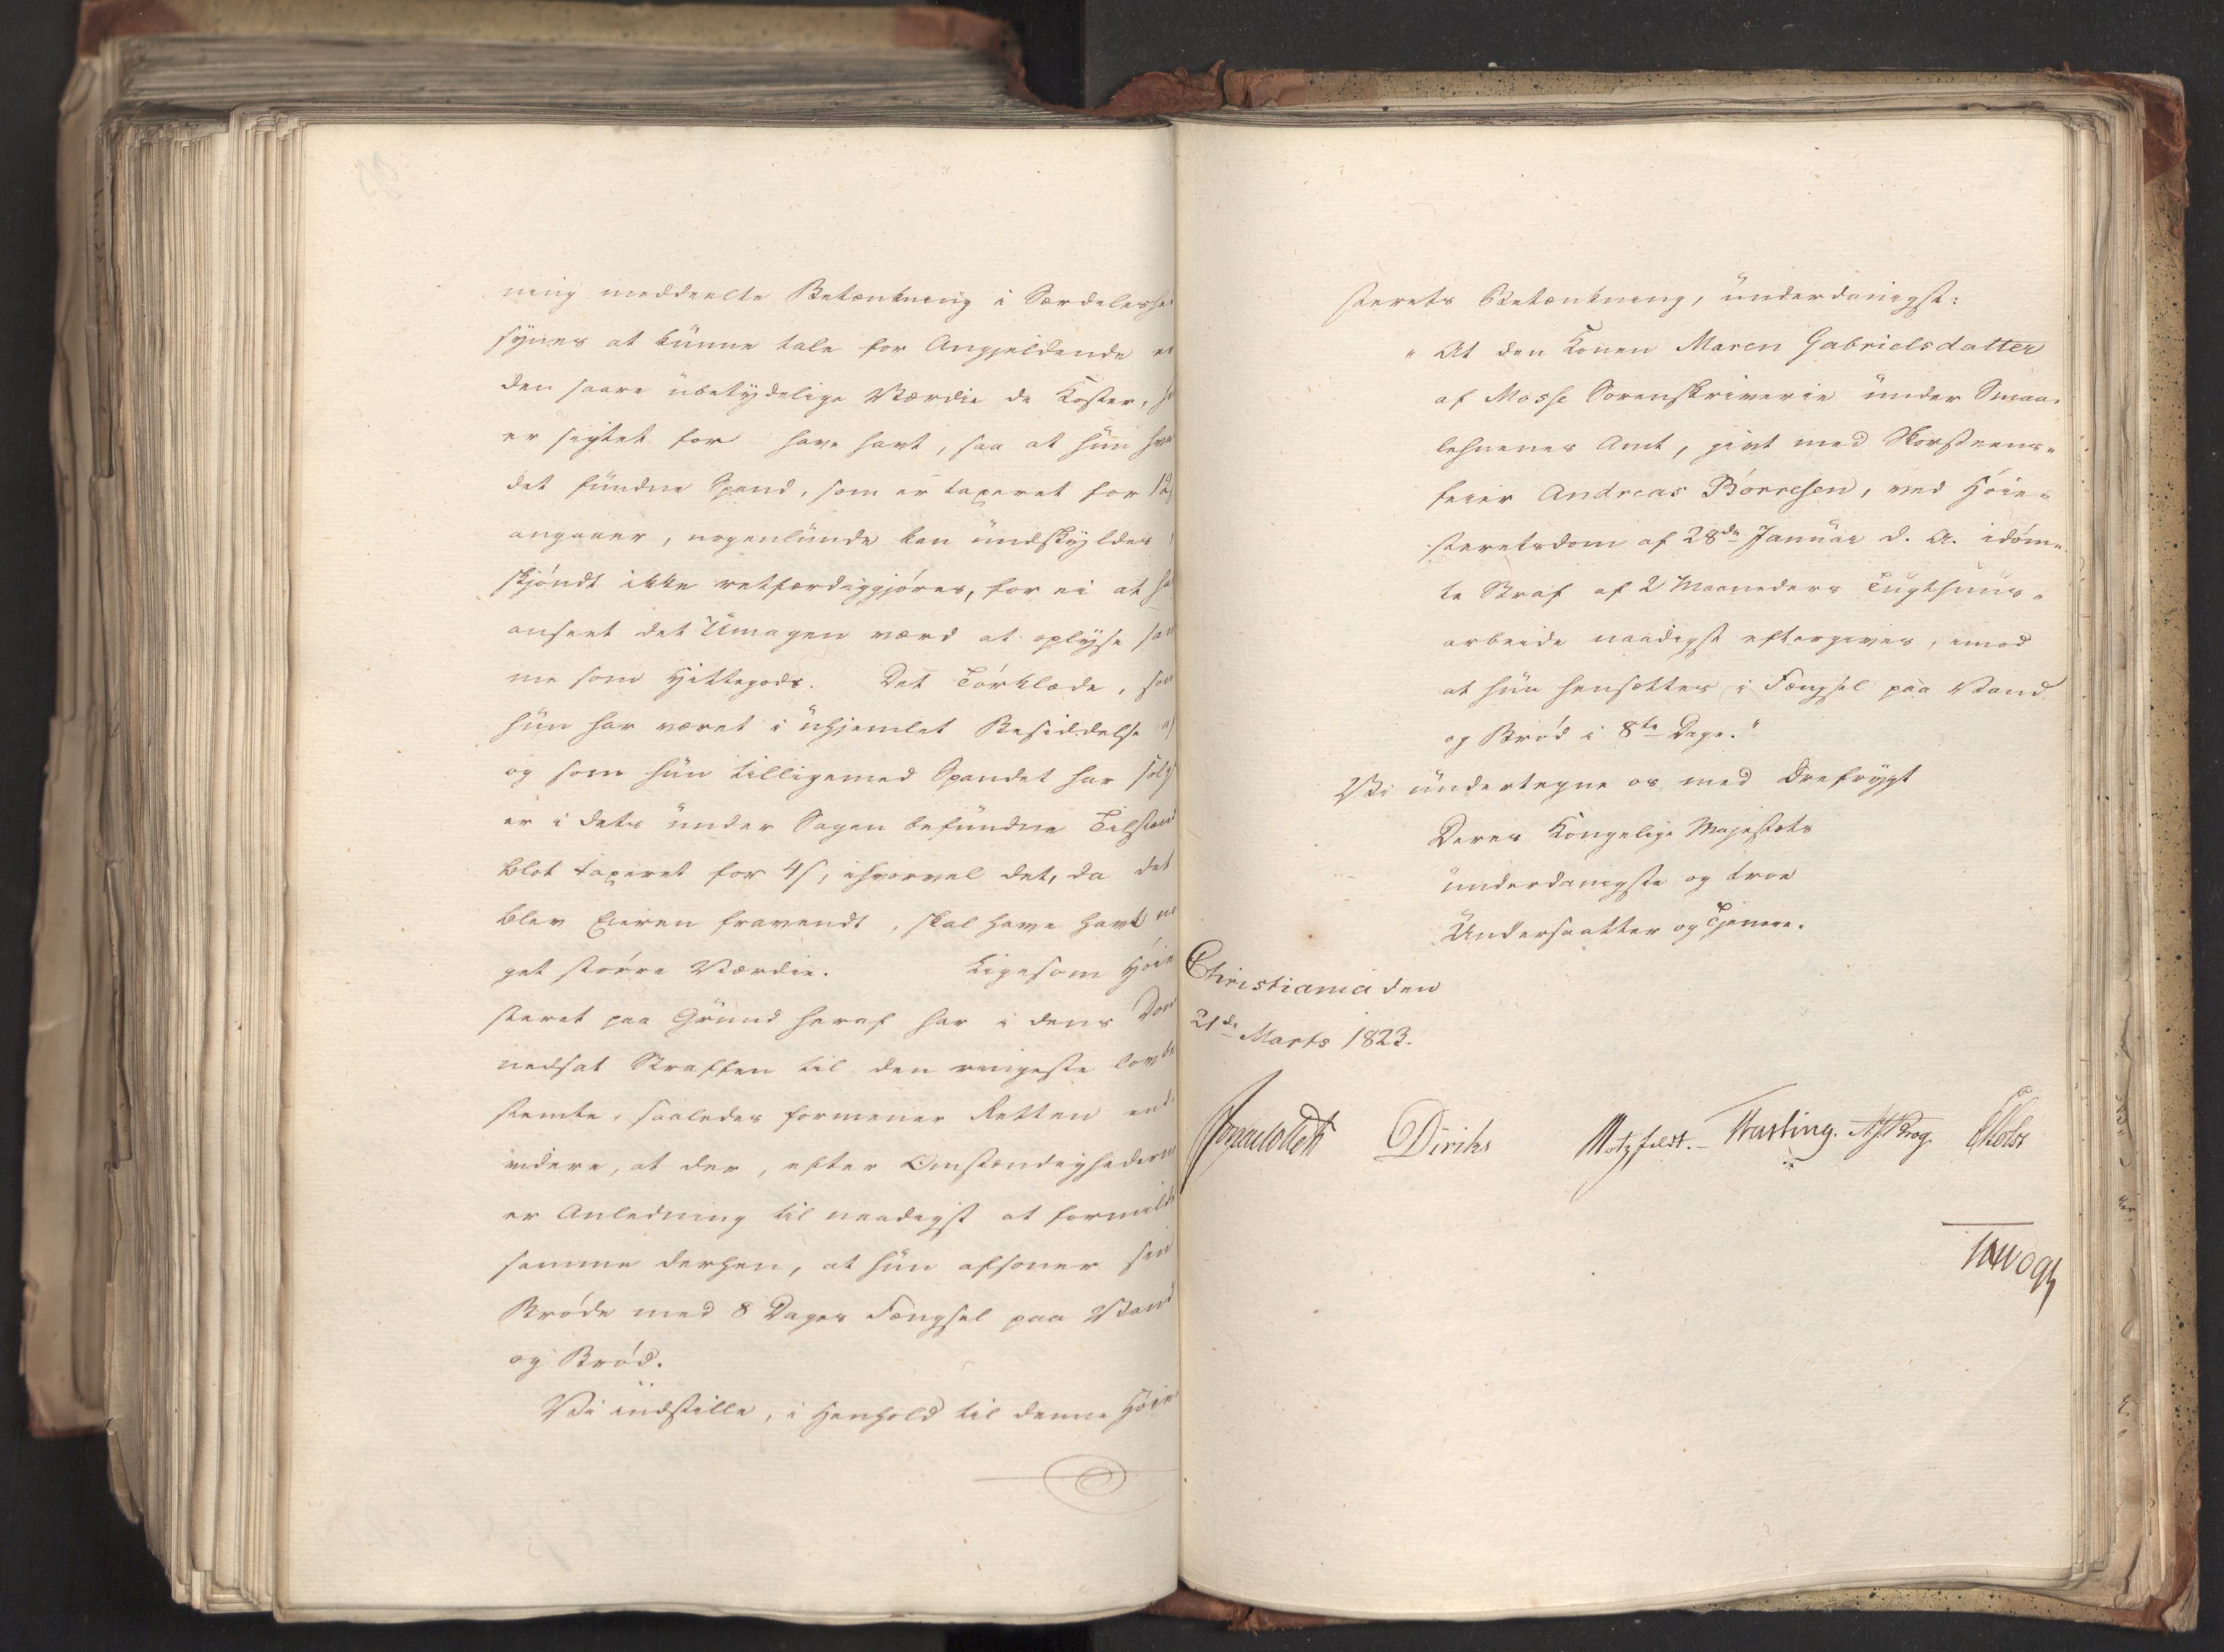 ning meddeelte Betænkning i Særdeleshe
synes at kunne tale for Angjeldende er
den saare ubetydelige Værdie de Koster, hu
er sigtet for have havt, saa at hun hva
det fundne Spand, som er taxeret for 12
angaaer, nogenlunde kan undskyldes
skjøndt ikke retfærdiggjøres, for ei at ha
anseet det Umagen værd at oplyse sam
me som Hittegods. Det Tørklæde, som
hun har været i uhjemlet Besiddelse af
og som hun tilligemed Spandet har solg
er i dets under Sagen befundne Tilstand
blot taxeret for 4 s, ihvorvel det, da det
blev Eieren fravendt, skal have havt no
get større Værdie. Ligesom Høie
steret paa Grund heraf har i dens Dom
nedsat Straffen til den ringeste lovbe
stemte, saaledes formener Retten end
videre, at der, efter Omstændighederne
er Anledning til naadigst at formilde
samme derhen, at hun afsoner sin
Brøde med 8 Dages Fængsel paa Vand
og Brød.
Vi indstille, i Henhold til denne Høie
sterets Betænkning, underdanigst:
"At den Konen Maren Gabrielsdatter
af Mosse Sorenskriverie under Smaa-
lehnenes Amt, givt med Skorsteens-
feier Andreas Børresen, ved Høie-
steretsdom af 28de Januar d. A. idøm-
te Straf af 2 Maaneders Tugthuus-
arbeide naadigst eftergives, imod
at hun hensættes i Fængsel paa Vand
og Brød i 8te Dage."
Vi undertegne os med Ærefrygt
Deres Kongelige Majestæts
underdanigste og troe
Undersaatter og Tjenere.
Christiania den
21de Marts 1823.
Diriks Motzfeldt. Krog.
Vogt